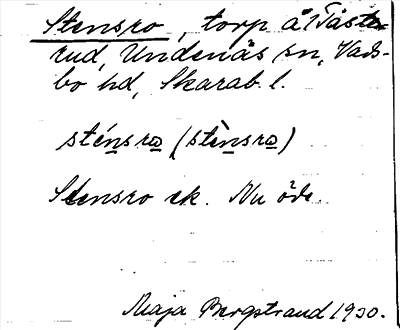 Stensro, torp å Täste-
rud, Undenäs sn, Vads-
bo hd, Skarab. l.
sténsrω (stènsrω)
Stensro ek. Nu öde.
Maja Bergstrand 1930.